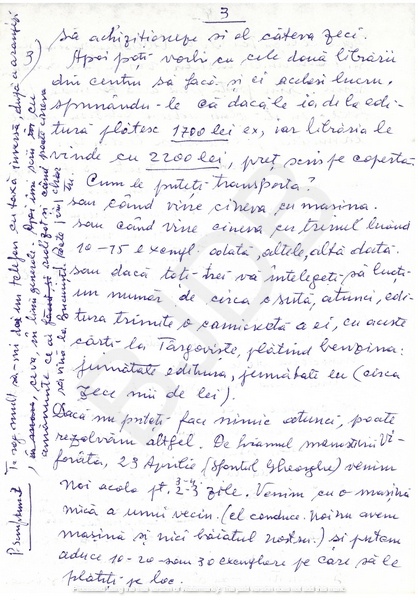 3
să achiziționeze și el câteva zeci.
Apoi poți vorbi cu cele două librării
din centru să facă și ei același lucru,
spunându-le că dacă le ia de la edi-
tură plătesc 1700 lei ex, iar librăria le
vinde cu 2200 lei, preț scris pe copertă.
Cum le puteți transporta?
sau când vine cineva cu mașina.
sau când vine cineva cu trenul luând
10-15 exempl. odată, altele, altă dată.
sau dacă toți trei vă înțelegeți să luați
un număr de circa o sută, atunci, edi-
tura trimite o camionetă a ei, cu aceste
cărți la Târgoviște, plătind benzina:
jumătate editura, jumătate eu (circa
zece mii de lei).
Dacă nu puteți face nimic atunci, poate
rezolvăm altfel. De hramul mănăstirii Vi-
forâta, 23 Aprilie (Sfântul Gheorghe) venim
noi acolo pt. 2-3 zile. Venim cu o mașină
3-4
mică a unui vecin. (el conduce. Noi nu avem
mașină și nici băiatul nostru.) și putem
aduce 10-20 sau 30 exemplare pe care să le
plătiți pe loc.
Te rog mult să-mi dai un telefon cu taxă inversă, după ce aranjezi
ceva, în linii generale. Apoi îmi scrii tot cu
amănunte ce ai și când poate cineva
să vină la București.